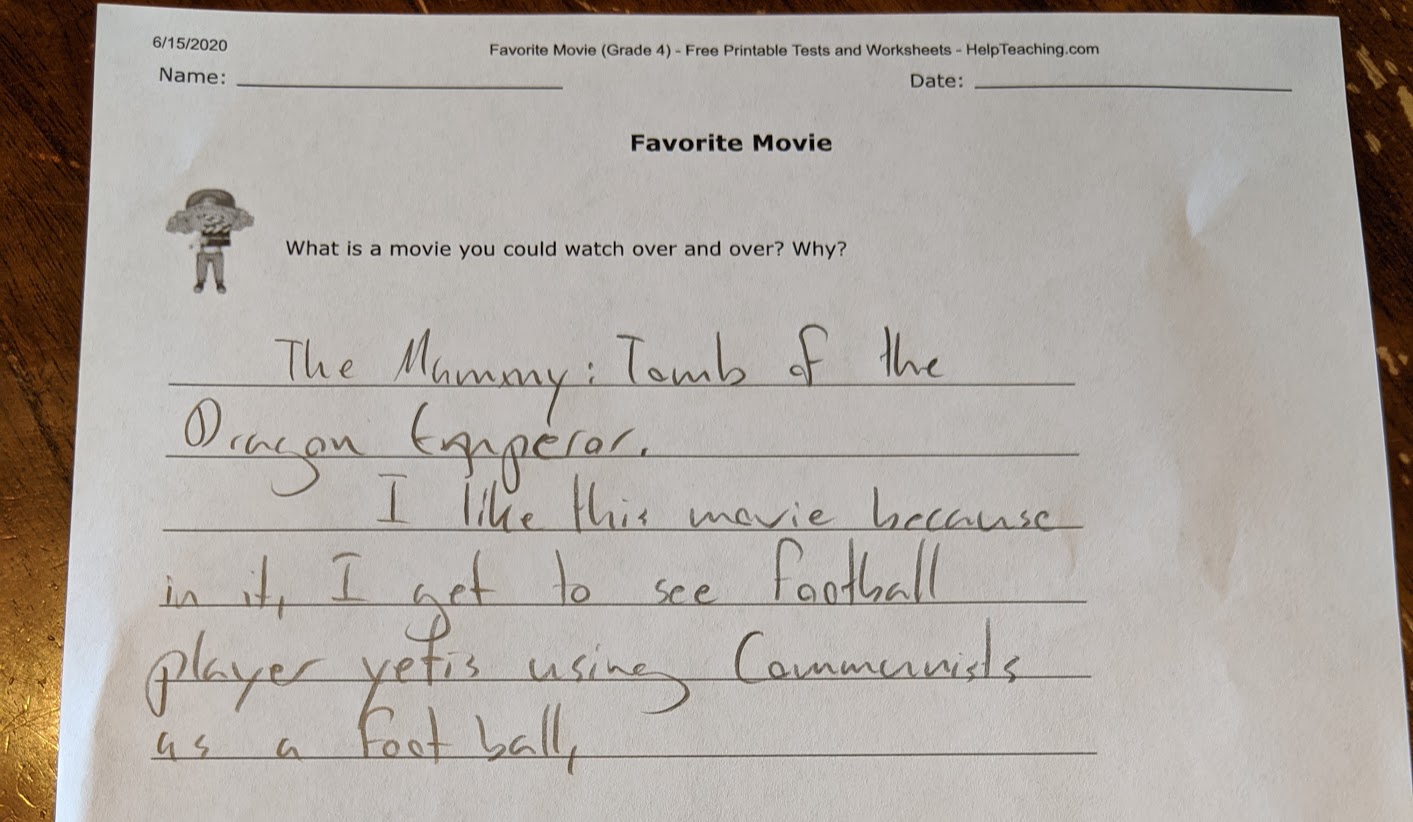 6/15/2020 Favorite Movie (Grade 4) - Free Printable Tests and Worksheets - HelpTeaching.com
Name: Date:
Favorite Movie
What is a movie you could watch over and over? Why?
The Mummy: Tomb of the
Dragon Emperor.
I like this movie because
in it, I get to see football
player yetis using Communists
as a foot ball,